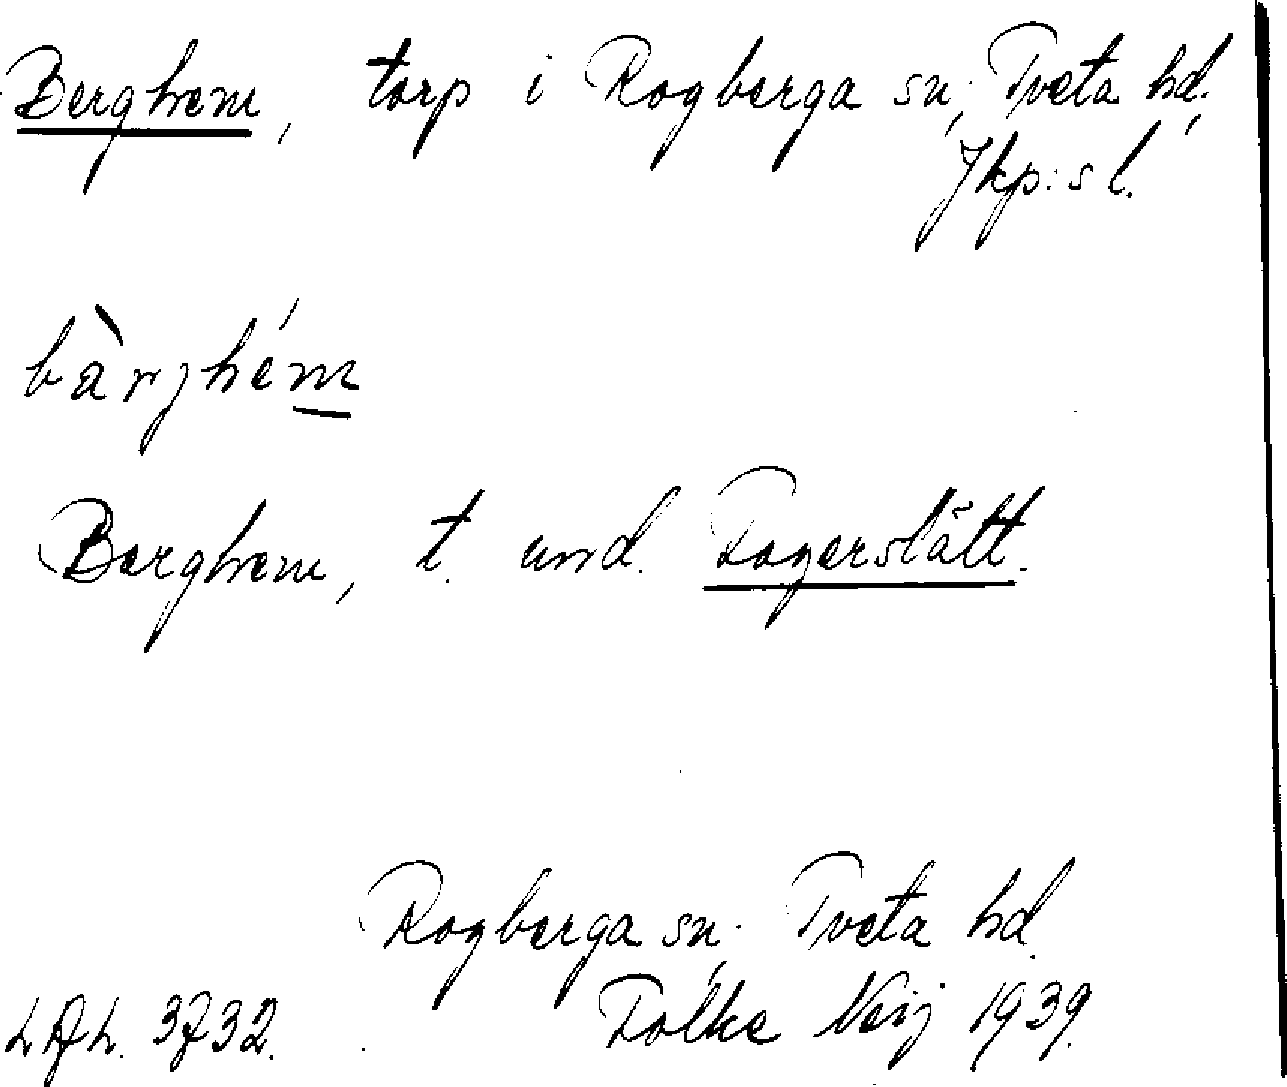 Berghem, torp i Rogberga sn., Tveta hd.,
Jkp:s l.
bàrjhém
Berghem, t. und. Fagerslätt.
Rogberga sn., Tveta hd.
Folke Neij 1939.